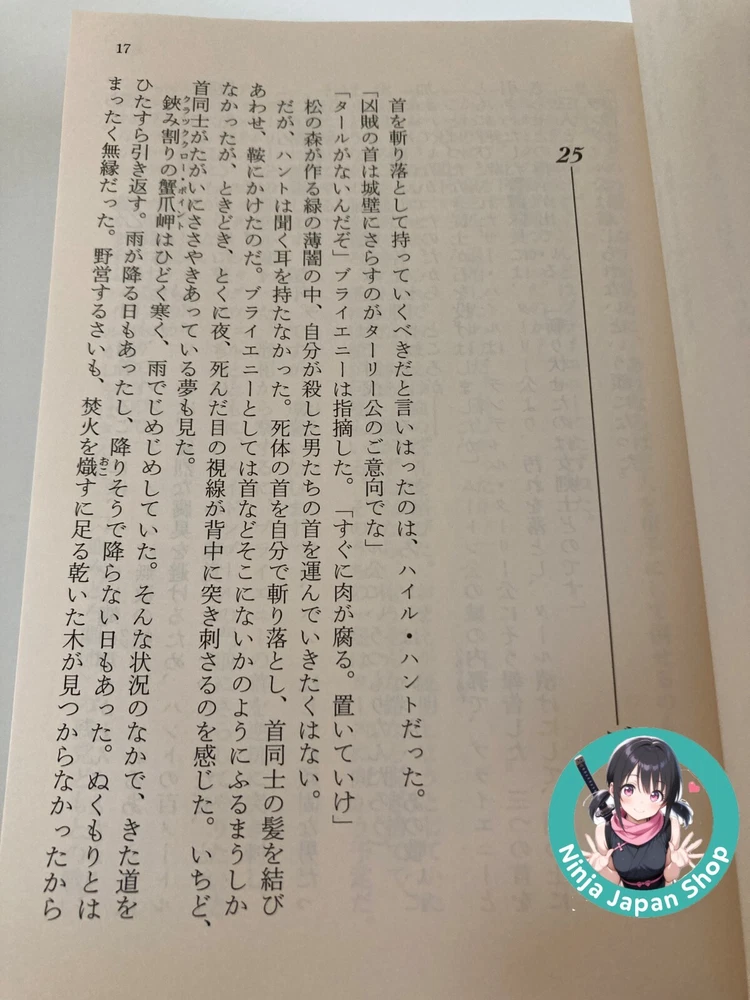 17
25
首を斬り落として持っていくべきだと言いはったのは、ハイル・ハントだった。
「凶賊の首は城壁にさらすのがターリー公のご意向でな」
「タールがないんだぞ」ブライエニーは指摘した。「すぐに肉が腐る。置いていけ」
松の森が作る緑の薄闇の中、自分が殺した男たちの首を運んでいきたくはない。
だが、ハントは聞く耳を持たなかった。死体の首を自分で斬り落とし、首同士の髪を結び
あわせ、鞍にかけたのだ。ブライエニーとしては首などそこにないかのようにふるまうしか
なかったが、ときどき、とくに夜、死んだ目の視線が背中に突き刺さるのを感じた。いちど、
首同士がたがいにささやきあっている夢も見た。
クラッククロー・ポイント
鋏み割りの蟹爪岬はひどく寒く、雨でじめじめしていた。そんな状況のなかで、きた道を
ひたすら引き返す。雨が降る日もあったし、降りそうで降らない日もあった。ぬくもりとは
まったく無縁だった。野営するさいも、焚火を熾すに足る乾いた木が見つからなかったから
おこ
Ninja Japan Shop